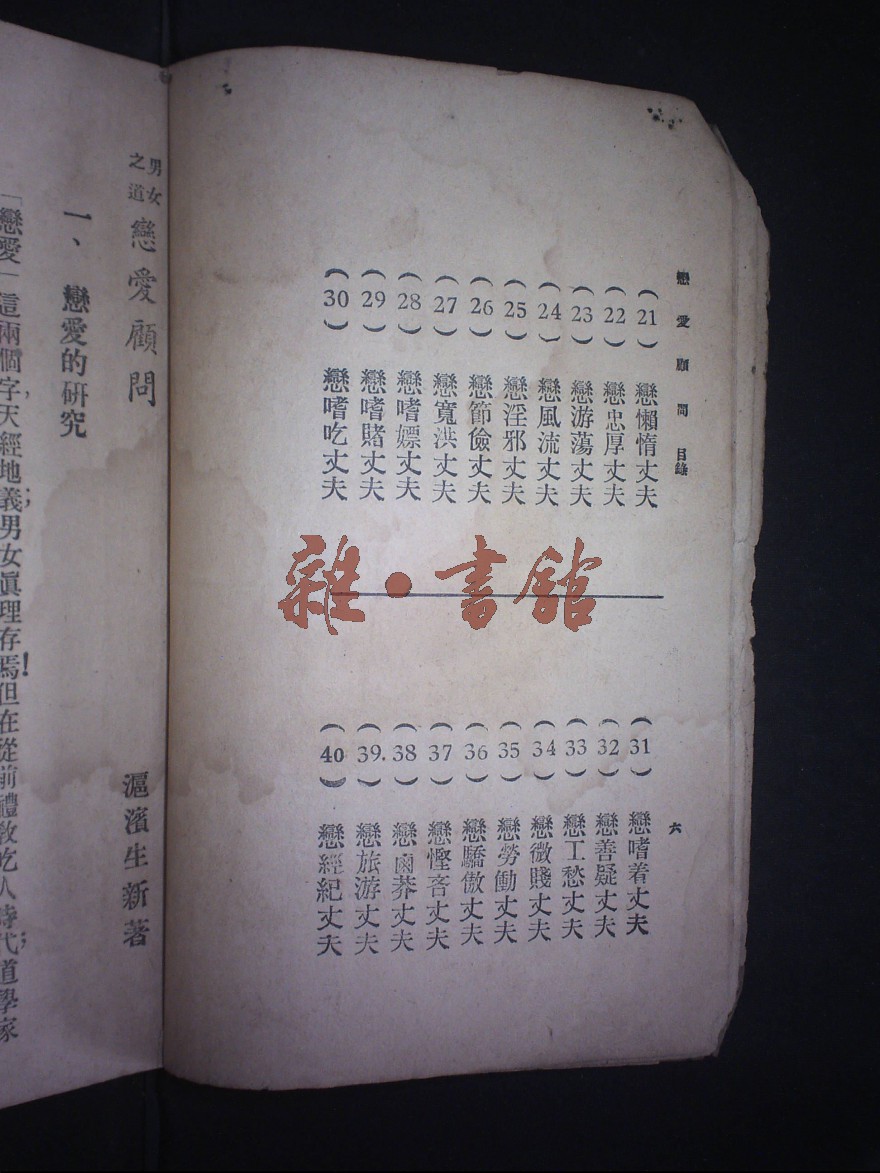 戀愛顧問 目錄
(21) 戀懶惰丈夫
(22) 戀忠厚丈夫
(23) 戀游蕩丈夫
(24) 戀風流丈夫
(25) 戀淫邪丈夫
(26) 戀節儉丈夫
(27) 戀寬洪丈夫
(28) 戀嗜嫖丈夫
(29) 戀嗜賭丈夫
(30) 戀嗜吃丈夫
六
(31) 戀嗜着丈夫
(32) 戀善疑丈夫
(33) 戀工愁丈夫
(34) 戀微賤丈夫
(35) 戀勞働丈夫
(36) 戀驕傲丈夫
(37) 戀慳吝丈夫
(38) 戀鹵莽丈夫
(39.) 戀旅游丈夫
(40) 戀經紀丈夫
雜•書館
男女之道 戀愛顧問
滬濱生新著
一、戀愛的研究
「戀愛」這兩個字，天經地義；男女眞理存焉！但在從前禮敎吃人時代；道學家